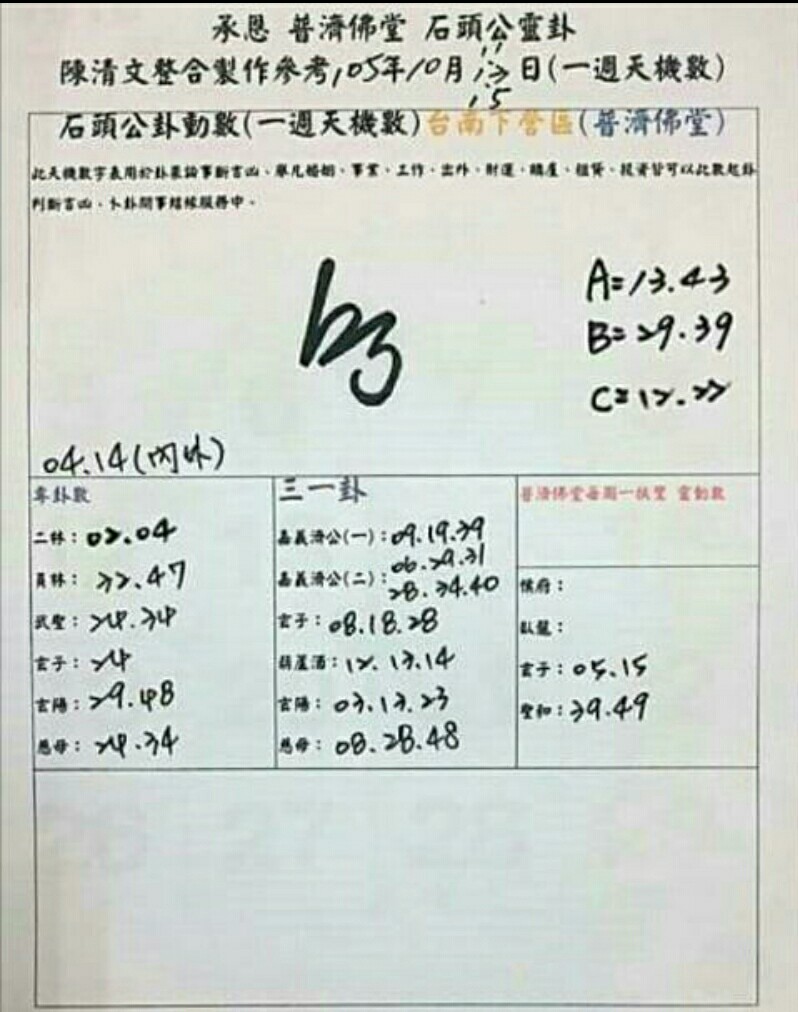 承恩 普濟佛堂 石頭公靈卦
陳清文整合製作參考105年10月11 13 15日(一週天機數)
石頭公卦動數(一週天機數)台南下營區(普濟佛堂)
此天機數字表用於卦象論事斷吉凶、舉凡婚姻、事業、工作、出外、財運、購產、租賃、投資皆可以此數起卦
判斷吉凶、卜卦問事結緣服務中。
A=13.43
B=29.39
C=12.22
04.14(內外)
專卦數
二林：02.04
員林：32.47
武聖：24.34
玄子：24
玄陽：29.48
慈母：24.34
三一卦
嘉義濟公(一)：09.19.39
嘉義濟公(二)：06.29.31
28.34.40
玄子：08.18.28
葫蘆酒：12.13.14
玄陽：03.13.23
慈母：08.28.48
普濟佛堂每期一扶聖 靈動數
候府：
臥龍：
玄子：05.15
聖和：39.49